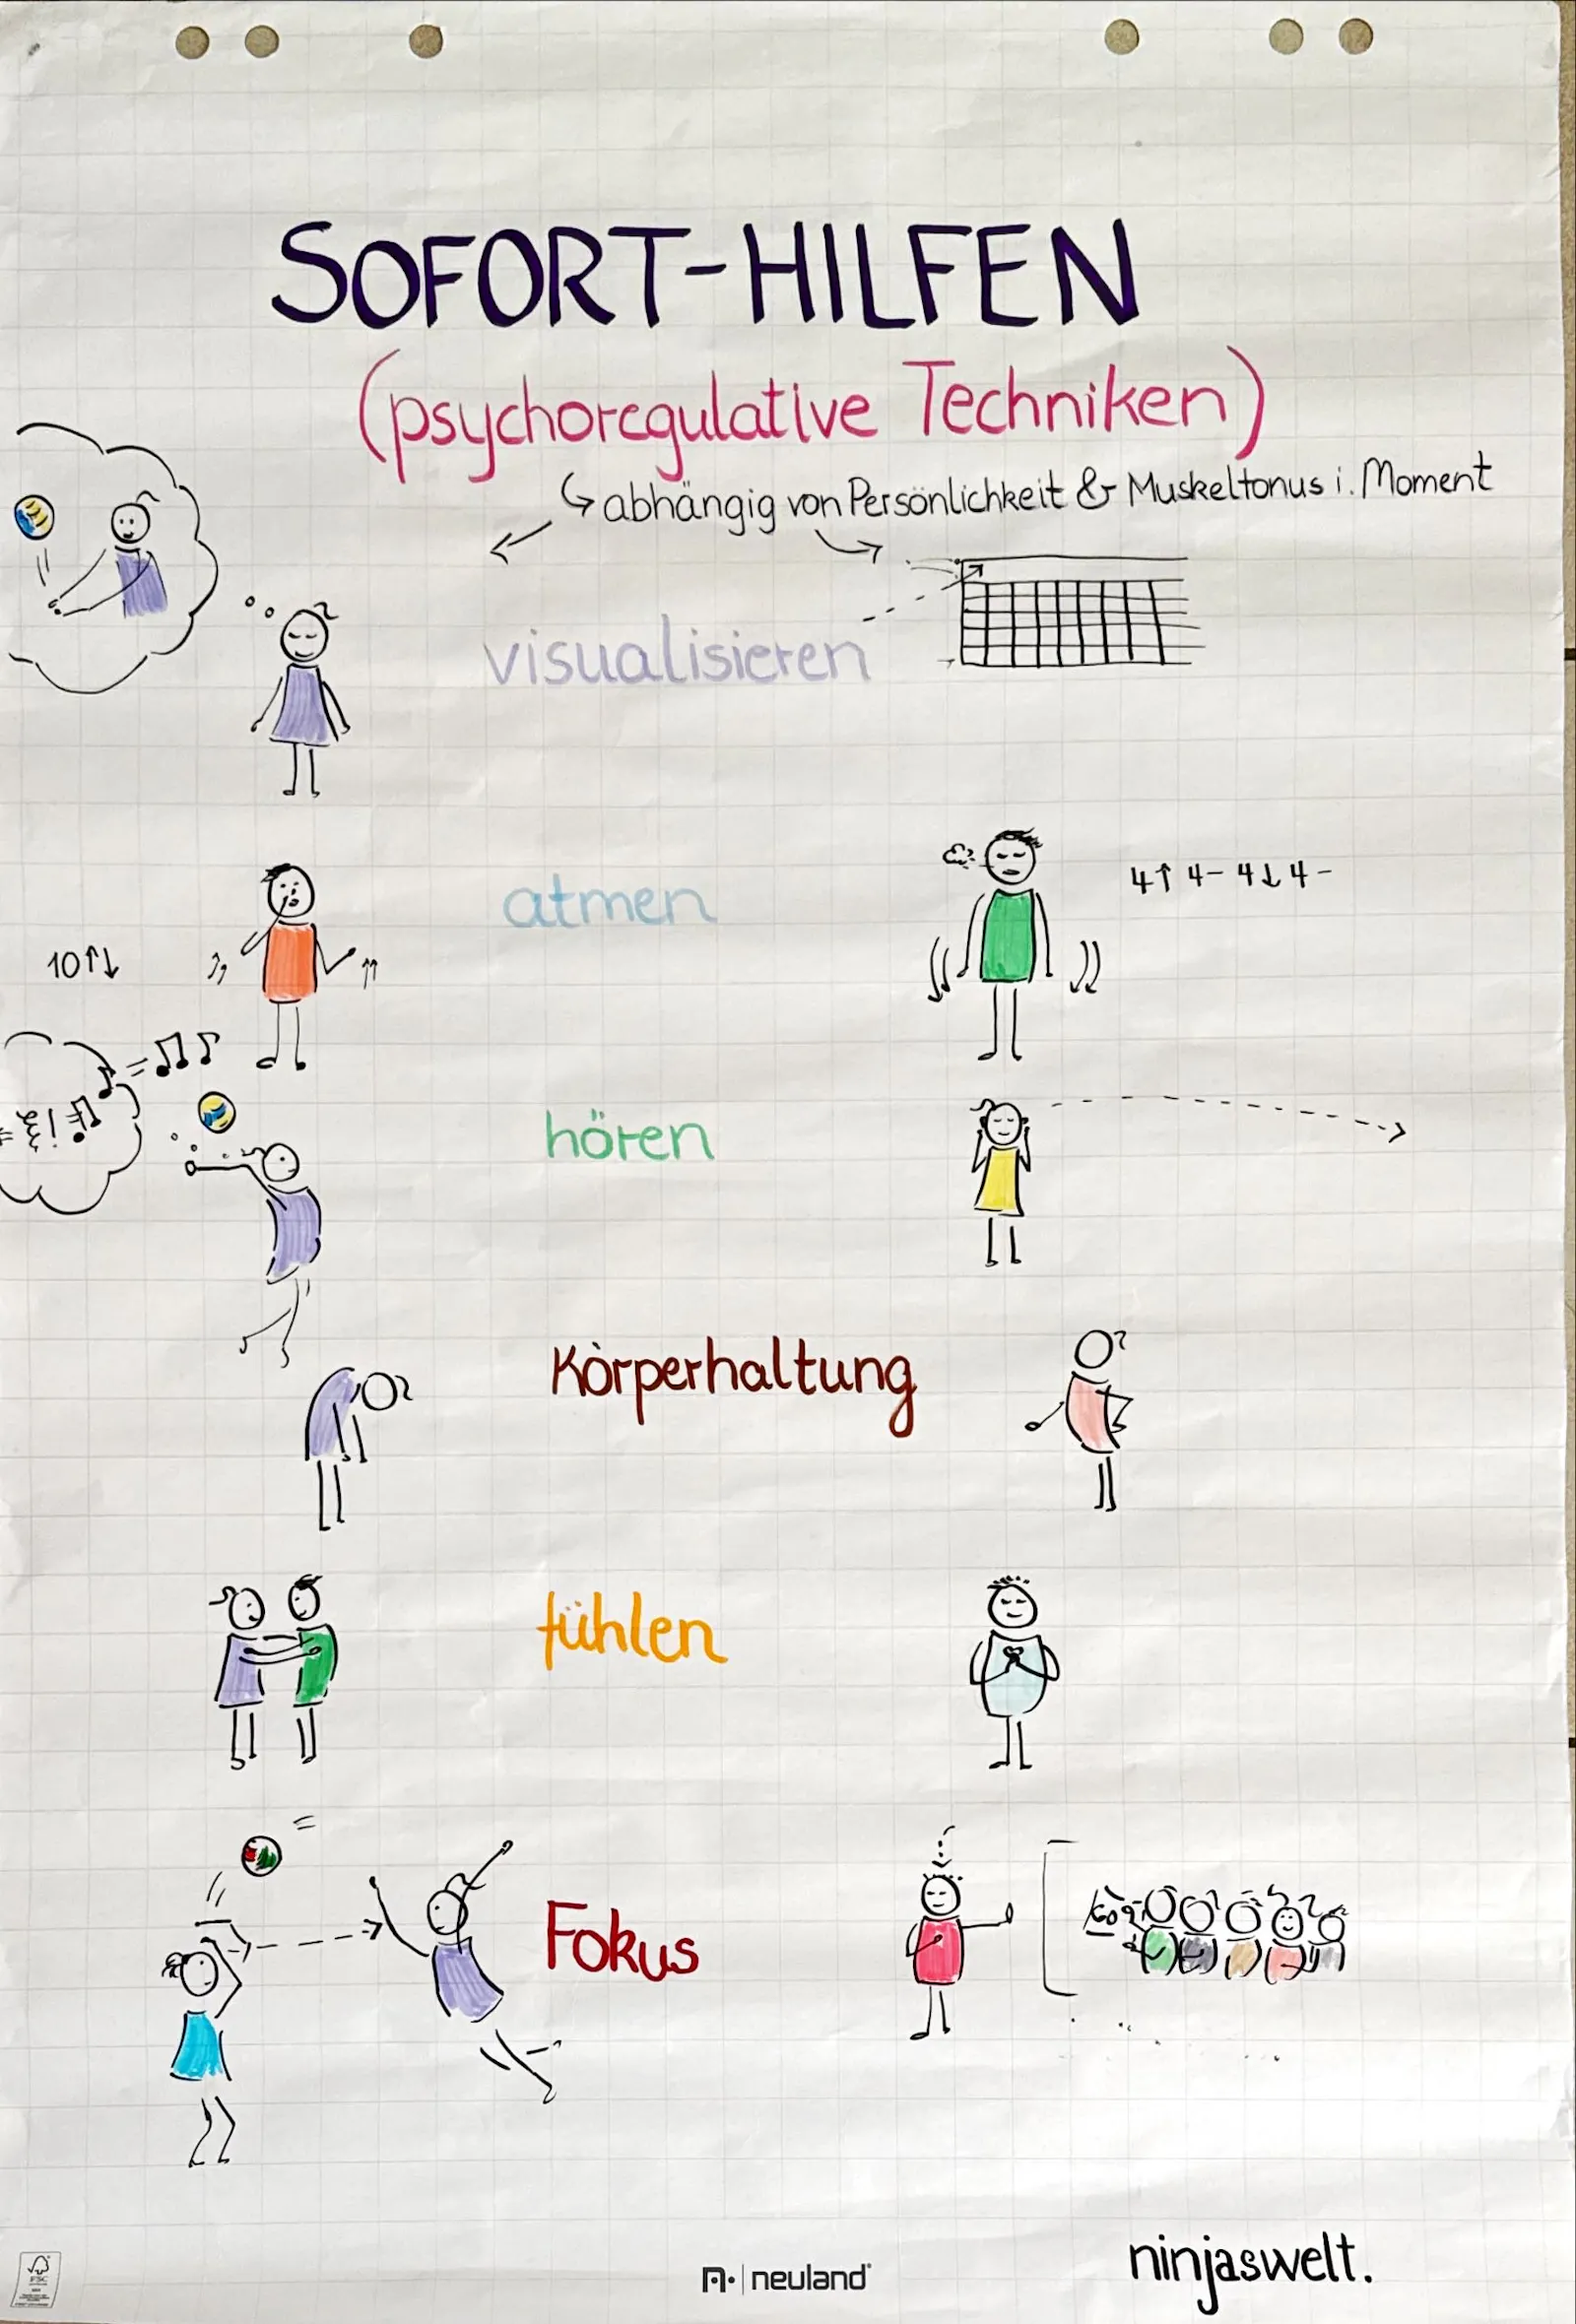 SOFORT-HILFEN
(psychoregulative Techniken)
↳ abhängig von Persönlichkeit & Muskeltonus i. Moment
visualisieren
atmen
4↑ 4- 4↓ 4-
10↑↓
hören
Körperhaltung
fühlen
Fokus
ninjaswelt.
neuland
FSC